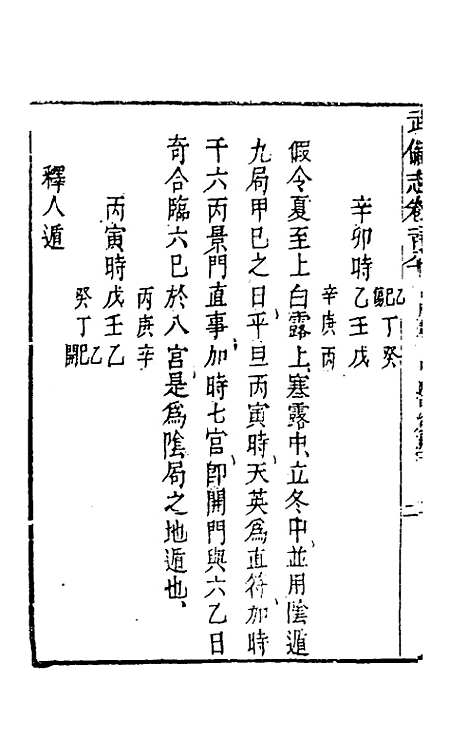 武備志卷
乙己丁癸
辛卯時乙壬戊
辛庚丙
假令夏至上白露上、寒露中、立冬中、並用陰遁
九局甲巳之日、平旦丙寅時、天英爲直符、加時
干六丙景門直事、加時七宮、卽開門與六乙日
奇合臨六巳於八宮、是爲陰局之地遁也、
丙庚辛
丙寅時戊壬乙
癸丁乙己開
釋人遁